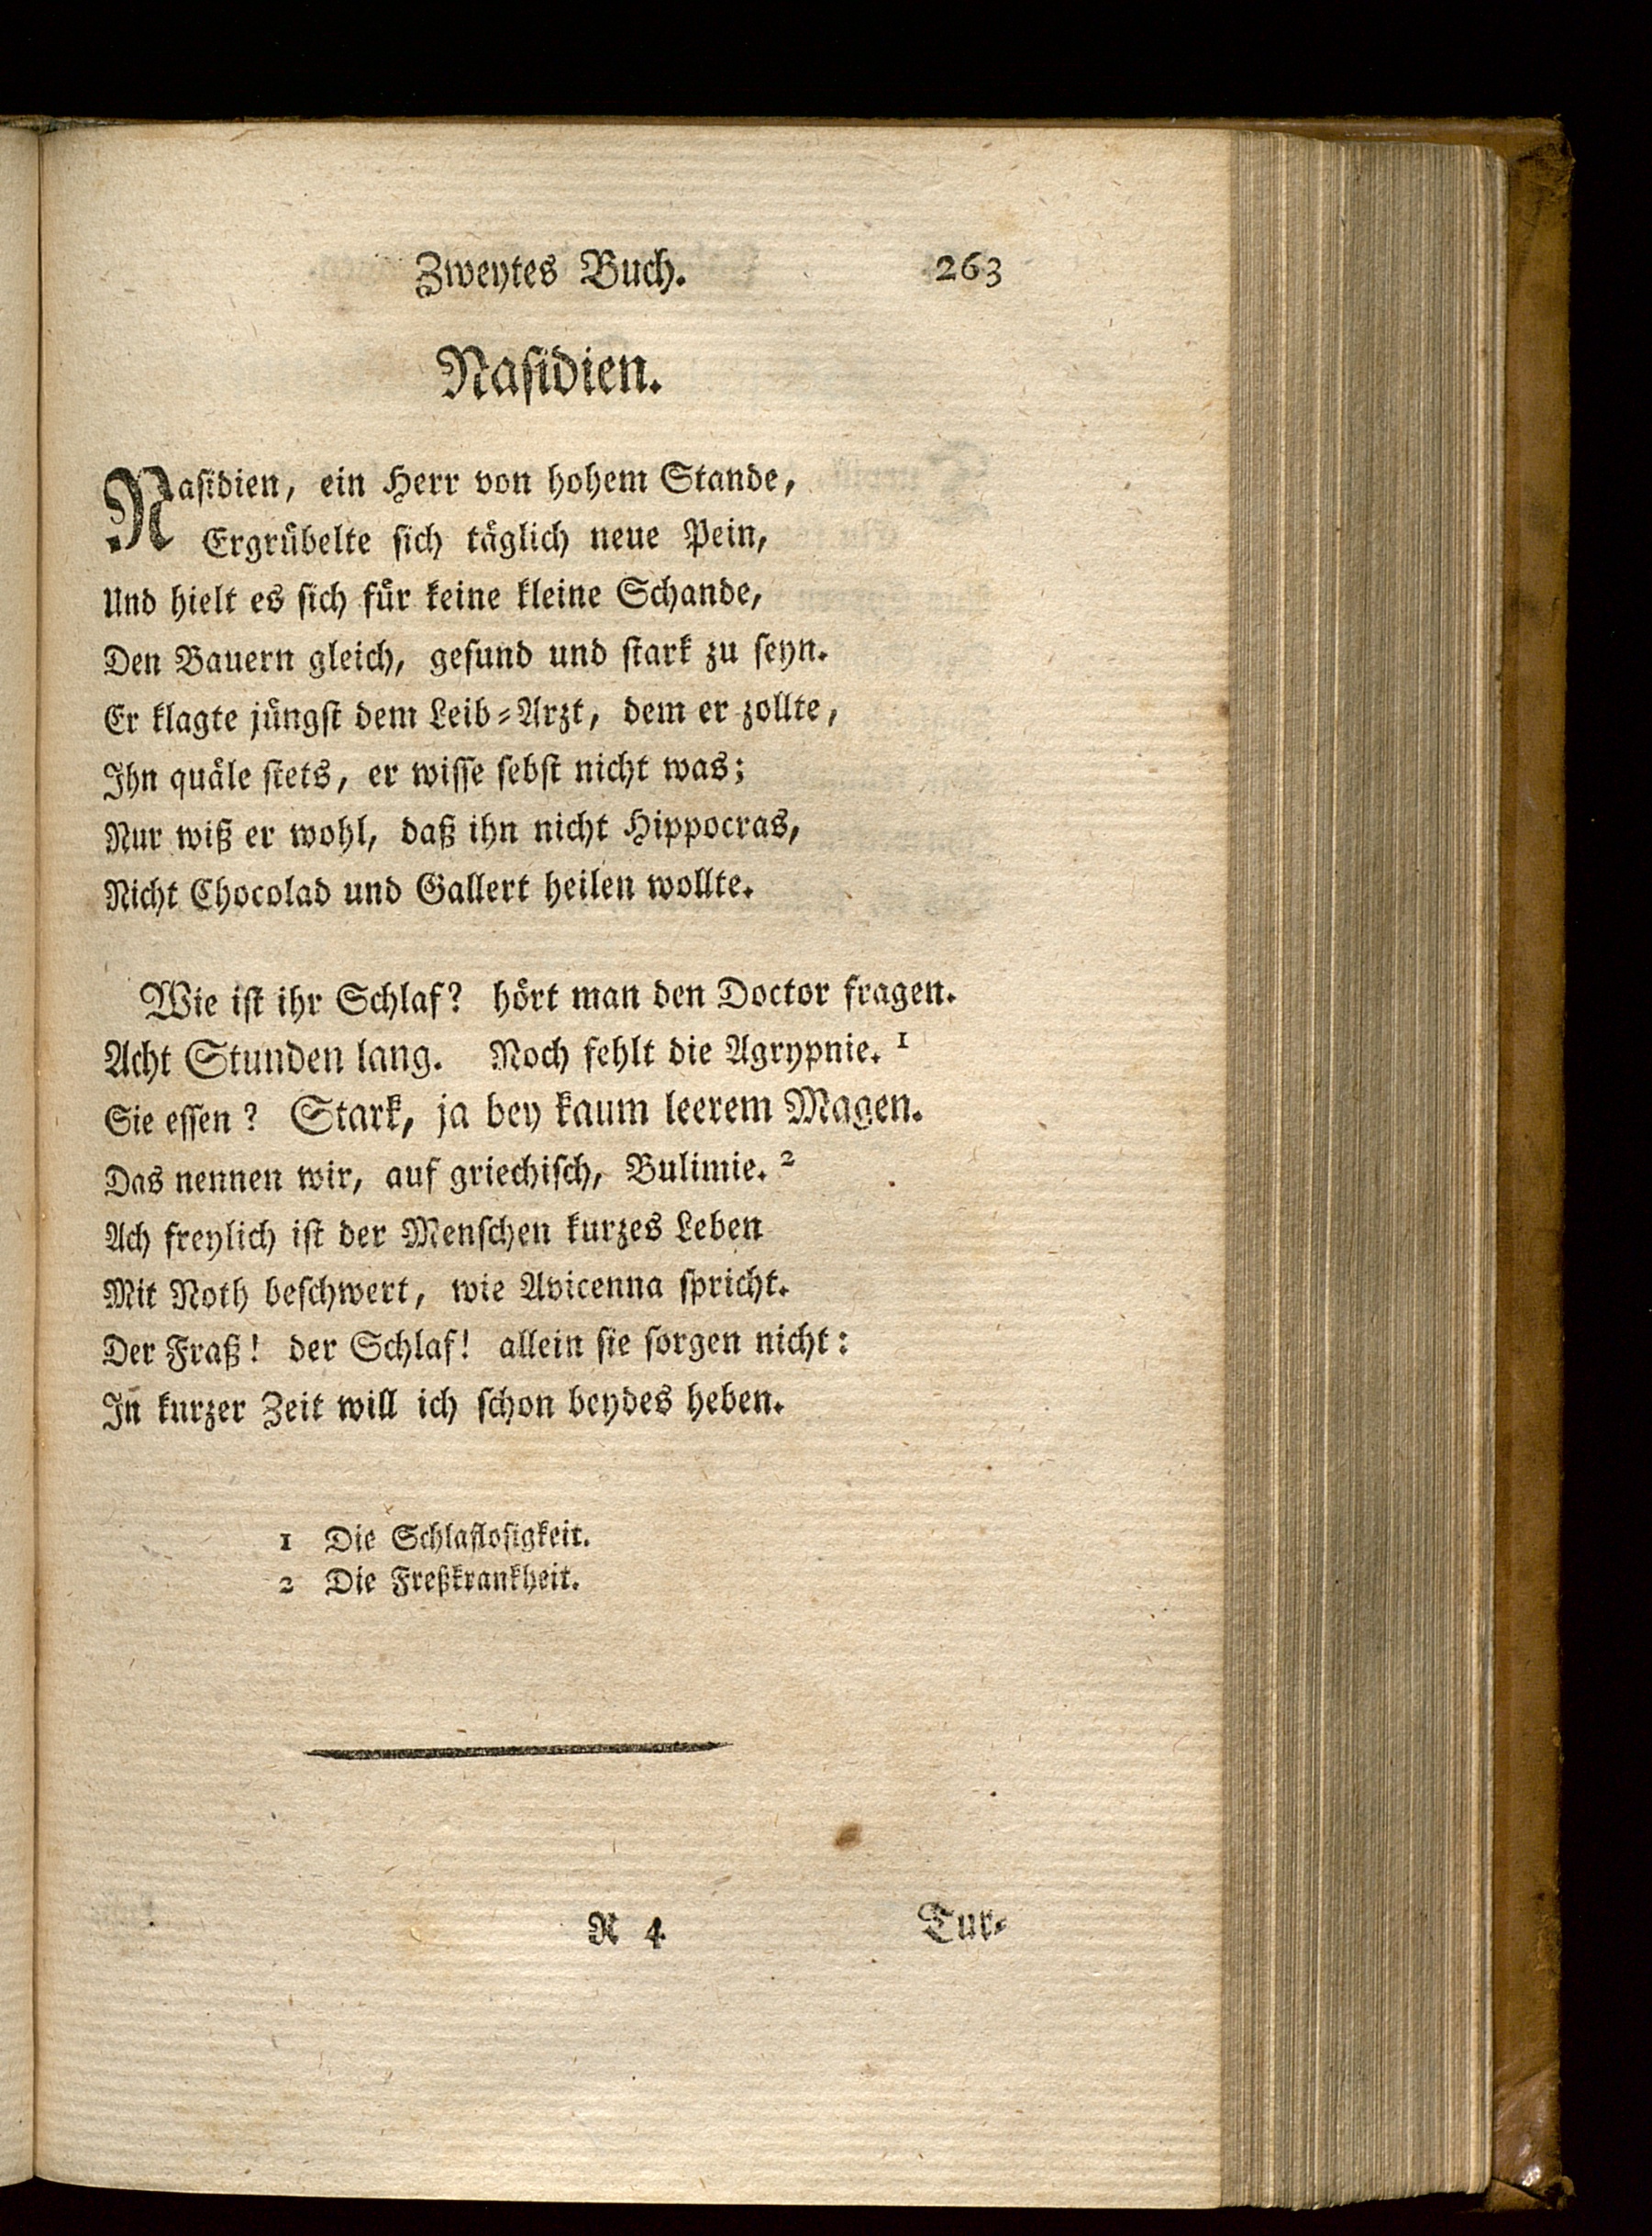 Zweytes Buch. 263
Naſidien.
Naſidien, ein Herr von hohem Stande,
Ergrübelte ſich täglich neue Pein,
Und hielt es ſich für keine kleine Schande,
Den Bauern gleich, geſund und ſtark zu ſeyn.
Er klagte jüngſt dem Leib-Arzt, dem er zollte,
Ihn quäle ſtets, er wiſſe ſebſt nicht was;
Nur wiß er wohl, daß ihn nicht Hippocras,
Nicht Chocolad und Gallert heilen wollte.
Wie iſt ihr Schlaf? hört man den Doctor fragen.
Acht Stunden lang. Noch fehlt die Agrypnie. 1
Sie eſſen? Stark, ja bey kaum leerem Magen.
Das nennen wir, auf griechiſch, Bulimie. 2
Ach freylich iſt der Menſchen kurzes Leben
Mit Noth beſchwert, wie Avicenna ſpricht.
Der Fraß! der Schlaf! allein ſie ſorgen nicht:
In kurzer Zeit will ich ſchon beydes heben.
1 Die Schlafloſigkeit.
2 Die Freßkrankheit.
R 4 Tur-